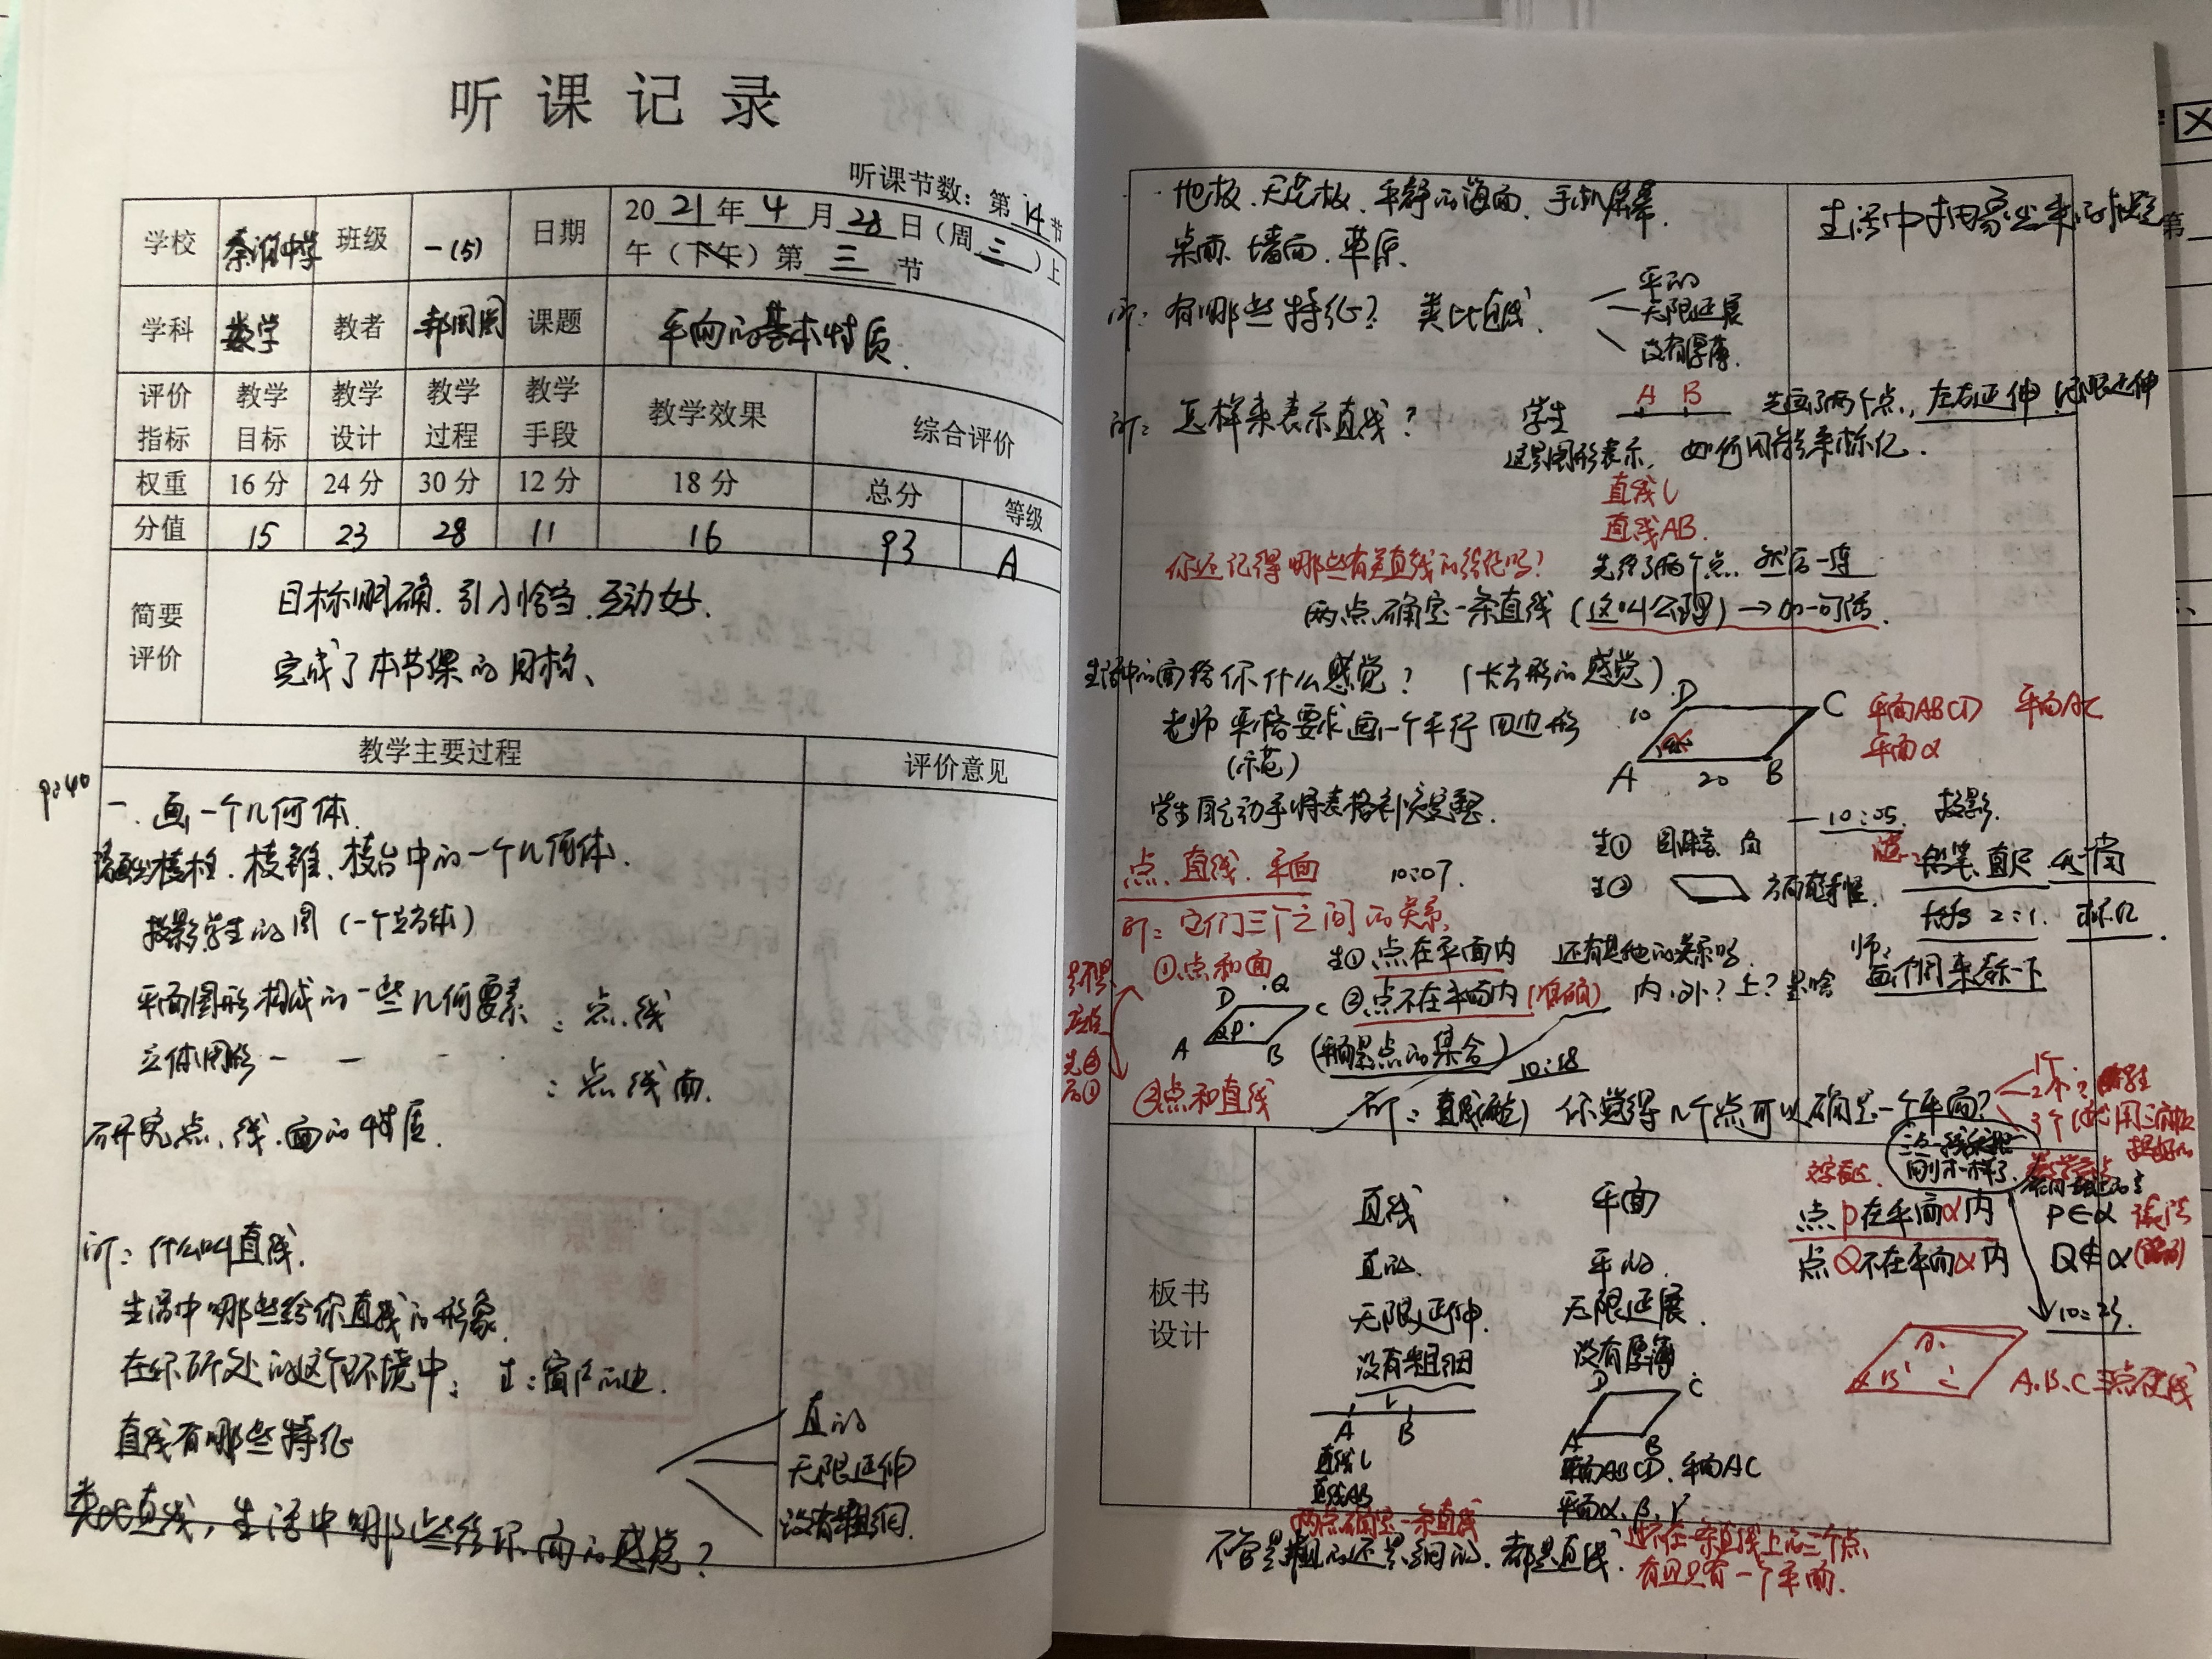 听课记录
听课节数：第 14 节
学校 秦淮中学 班级 一(5) 日期 2021年4月28日（周三）上
午（下午）第 三 节
学科 数学 教者 课题 平面的基本性质.
评价指标 教学目标 教学设计 教学过程 教学手段 教学效果 综合评价
权重 16分 24分 30分 12分 18分 总分 等级
分值 15 23 28 11 16 93 A
简要评价
目标明确.引入恰当.互动好.
完成了本节课的目标、
教学主要过程 评价意见
9:40
一.画一个几何体.
棱柱.棱锥、棱台中的一个几何体.
投影学生的图（一个立方体）
平面图形构成的一些几何要素：点.线
立体图形 — — ：点线面.
研究点、线.面的性质.
师：什么叫直线.
生活中哪些给你直线的形象.
在你所处的这个环境中： 生：窗户的边.
直线有哪些特征
直的
无限延伸
没有粗细.
类比直线，生活中哪些给你面的感觉？
地板.天花板.平静的海面.手机屏幕.
桌面.墙面.草原.
师：有哪些特征？ 类比直线.
平的
无限延展
没有厚薄.
师：怎样来表示直线？ 学生
A B
先画了两个点，左右延伸 无限延伸
这是图形表示， 如何用符号来标记.
直线l
直线AB.
你还记得哪些有关直线的结论吗？ 先给了两个点.然后一连
两点确定一条直线（这叫公理）→加一句话.
生活中的面给你什么感觉？（长方形的感觉）
老师 严格要求画一个平行四边形
（示范）
D C
10
α
A 20 B
平面ABCD 平面AC
平面α
学生自己动手将表格补充完整.
10:05. 投影.
点、直线.平面 10:07.
生①
生②
铅笔、直尺
2:1. 标记.
师：它们三个之间的关系.
①点和面 生①点在平面内 还有其他的关系吗.
②点不在平面内（准确） 内.外？上？
师：
D ·Q C
αP·
A B
（平面是点的集合） 10:18
②点和直线
师：直线（确定）你觉得几个点可以确定一个平面？
1个
2个？
3个
板书设计
直线 平面
直的. 平的.
无限延伸. 无限延展.
没有粗细 没有厚薄
l
A B
D C
A B
直线l
直线AB
平面ABCD.平面AC
平面α、β、γ
点P在平面α内 P∈α 读法
点Q不在平面α内 Q∉α
10:23.
A.B.C三点
两点确定一条直线
不管是粗的还是细的.都是直线.
过不在一条直线上的三个点，
有且只有一个平面.